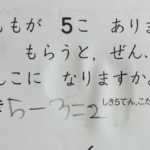 ももが 5こ ありま
もらうと，ぜん，
んこに なりますか。
5-3=2 しき5てん，こた